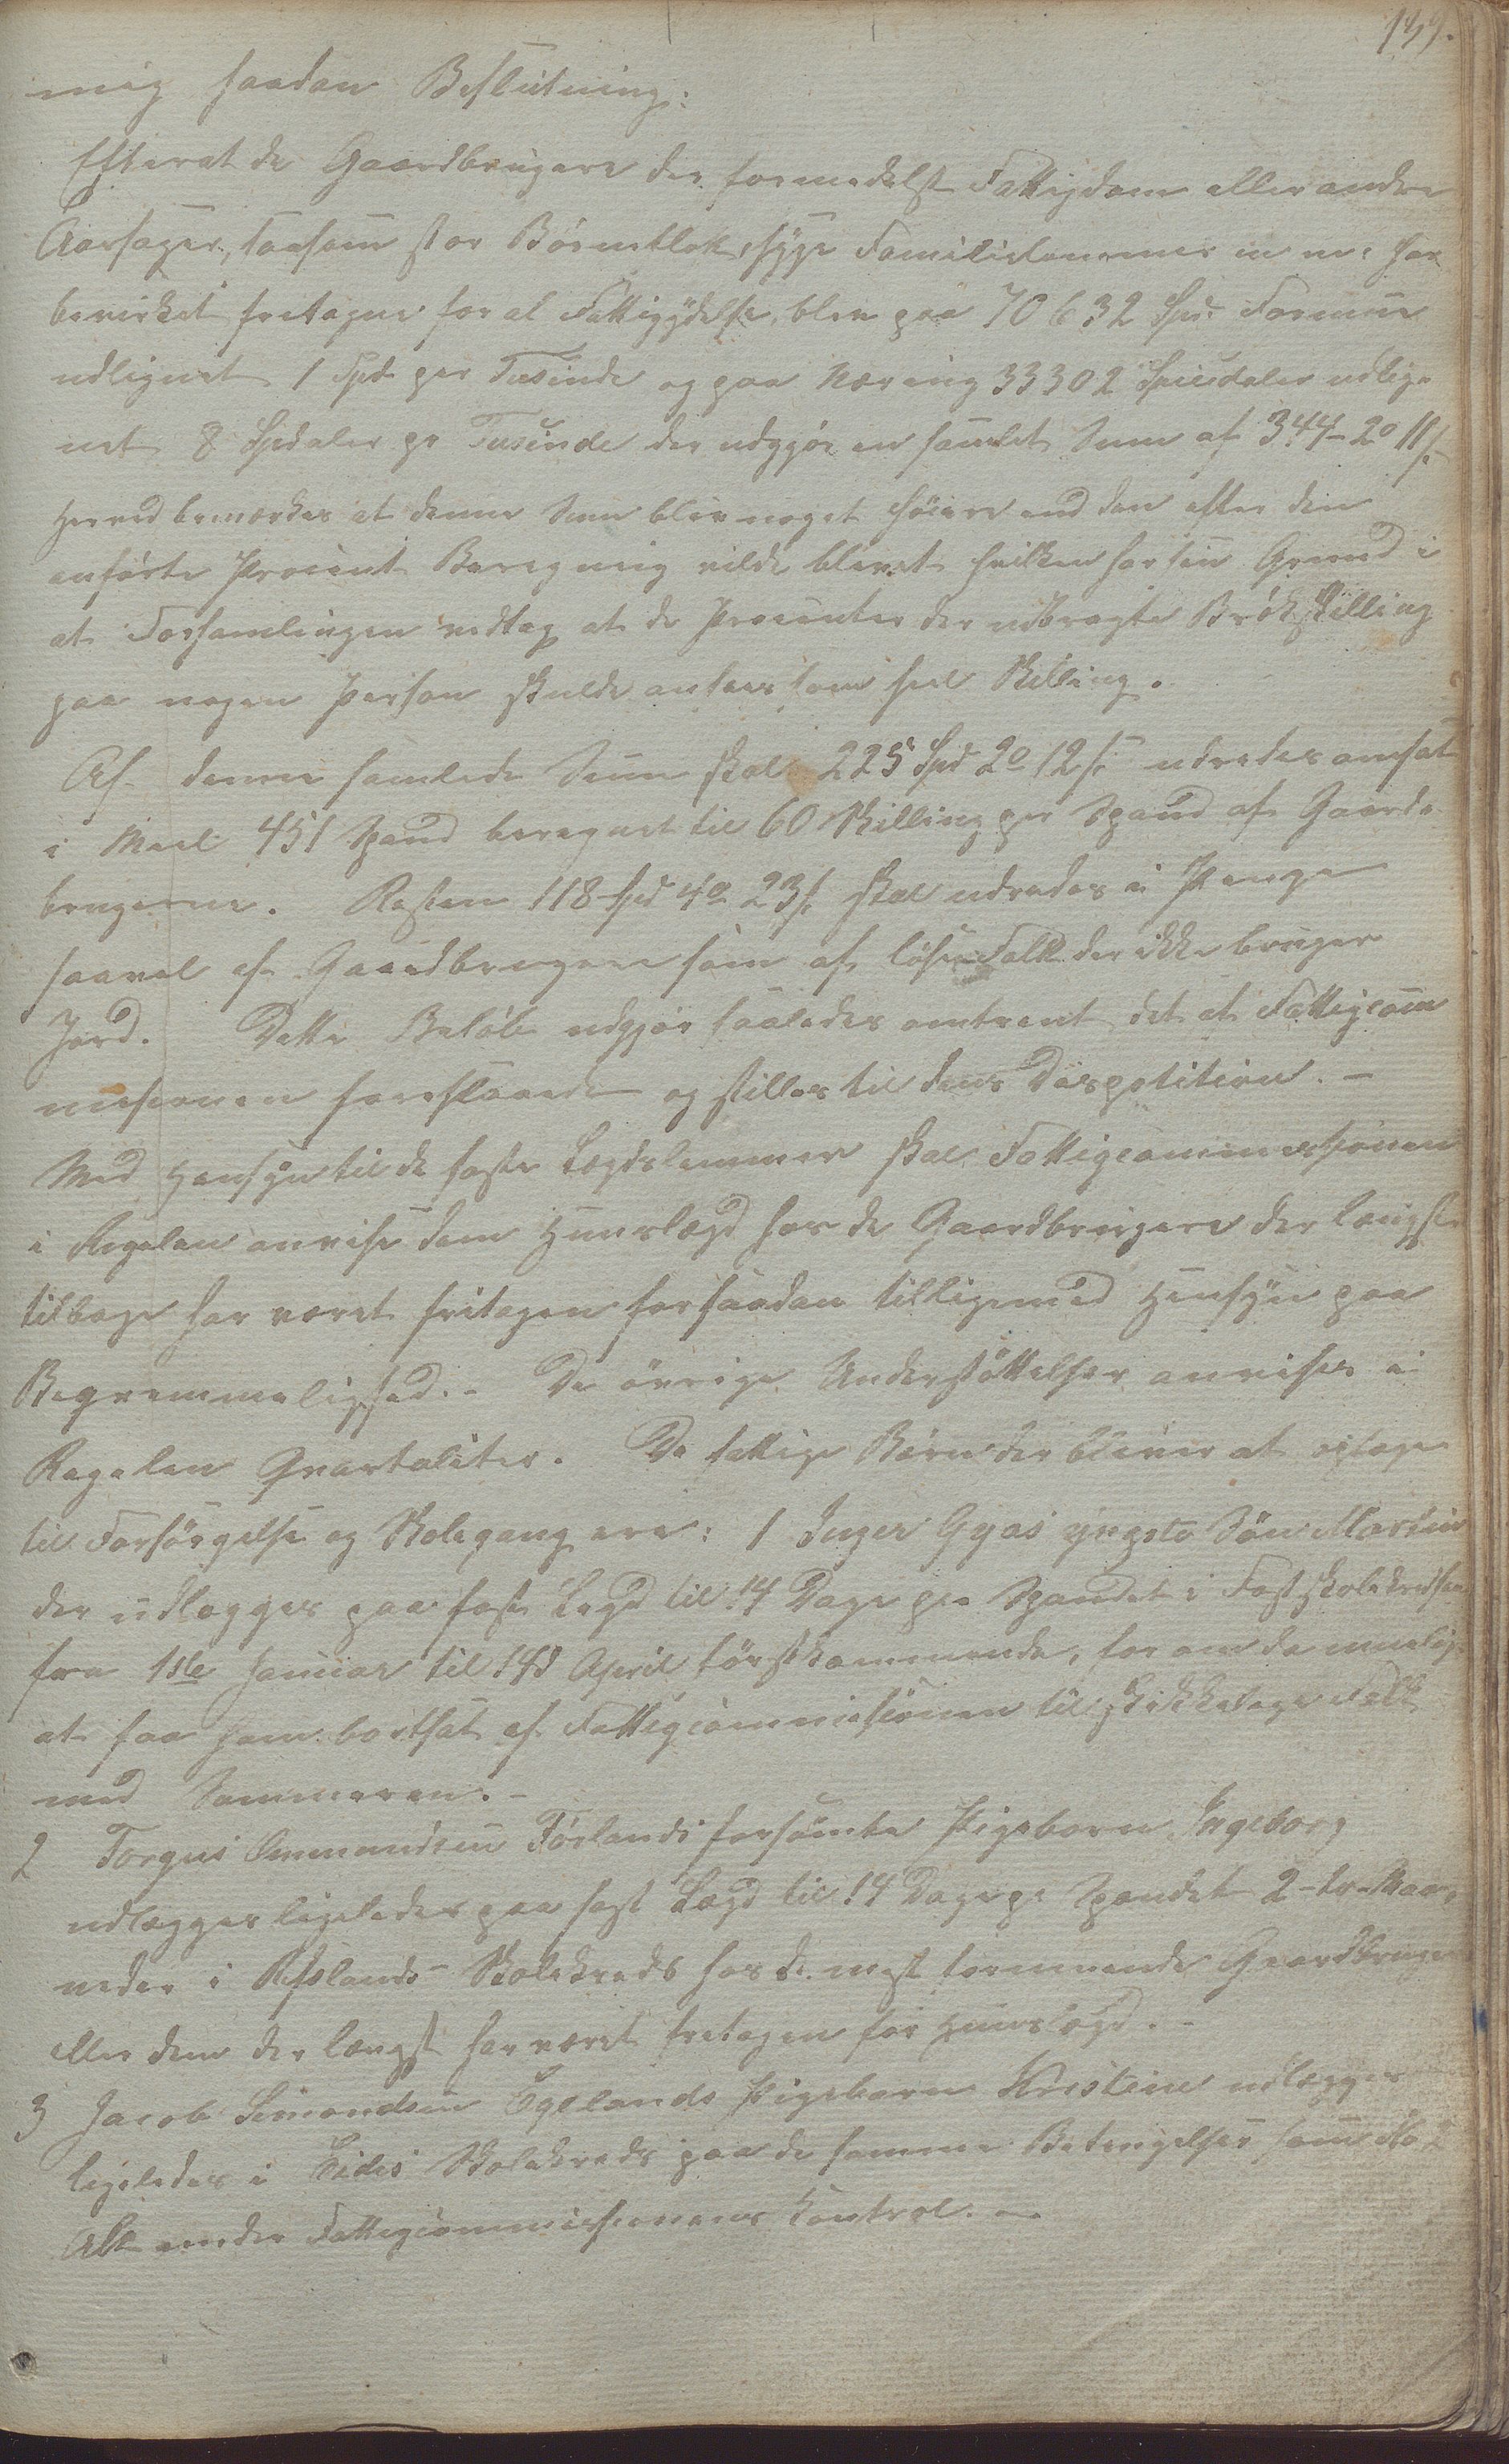 139.
mig saadan Beslutning:
Efterat de Gaardbrugere der formedelst Fattigdom eller andre
Aarsager, saasom stor Börneflok, syge Familielemmer m m: har
bevirket fritagne for al Fattigydelse, blev paa 70632 Spd: Formue
udlignet 1 Spd per Tusinde og paa Næring 33302 Speciedaler udlig-
net 8 Spdaler pr Tusinde der udgjör en samlet Sum af 344- 2o 11 s.
Herved bemærkes at denne Sum blev noget höiere end den efter den
anförte Procent Beregning vilde blevet hvilken har sin Grund i
at Forsamlingen vedtog at de Procenter der udbragte Brökskilling
paa nogen Person skulde ansees som heel Skilling.
Af denne samlede Sum skal 225 Spd 2o 12 s. udredes ansat
i Meel 451 Spand beregnet til 60 Skilling per Spand af Gaard-
brugerne. Resten 118 Spd 4o 23 s. skal udredes i Penge
saavel af Gaardbrugere som af löse Folk der ikke bruger
Jord. Dette Belöb udgjör saaledes omtrent det at Fattigcom
misionen foreslaaede og stilles til dens Dispotition. -
Med Hensyn til de faste Lægdslemmer skal Fattigcommissionen
i Regelen anvise dem Huuslægd hos de Gaardbrugere der længst
tilbage har været fritagen for saadan tilligemed Hensyn paa
Beqvemmelighed. - De övrige Understöttelser anvises i
Regelen Qvartaliter. De fattige Börn der bliver at optage
til Forsörgelse og Skolegang ere: 1 Inger Gyas yngste Sön Martin
der udlægges paa fast Lægd til 14 Dage pr Spandet i Fastskolekredsen
fra 1ste Januar til 14d April förstkommende, for om da muelig
at faa ham bortsat af Fattigcommissionen til skikkelige Folk
med Sommeren. -
2 Torgus Ommundsen Förlands forsömte Pigebarn Ingeborg
udlægges ligeledes paa fast Lægd til 14 Dage pr Spandet 2-to-Maa-
neder i Refslands Skolekreds hos de mest formuende Gaardbrugere
eller dem der længst har været fritagen for Huuslægd. -
3 Jacob Simondsen Egelands Pigebarn Kristine udlægges
ligeledes i Eides Skolekreds paa de samme Betingelser som No 2
Alt under Fattigcommissionens Kontrol. -